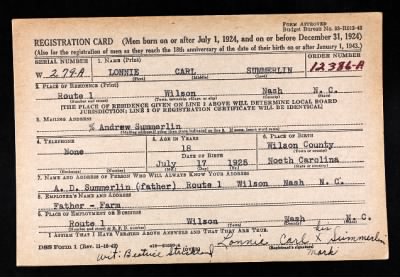 FORM APPROVED
Budget Bureau No. 33-R012-43
REGISTRATION CARD (Men born on or after July 1, 1924, and on or before December 31, 1924)
(Also for the registration of men as they reach the 18th anniversary of the date of their birth on or after January 1, 1943.)
SERIAL NUMBER 1. NAME (Print) ORDER NUMBER
W 279-A LONNIE CARL SUMMERLIN 12386-A
(First) (Middle) (Last)
2. PLACE OF RESIDENCE (Print)
Route 1 Wilson Nash N. C.
(Number and street) (Town, township, village or city) (County) (State)
[THE PLACE OF RESIDENCE GIVEN ON LINE 2 ABOVE WILL DETERMINE LOCAL BOARD
JURISDICTION; LINE 2 OF REGISTRATION CERTIFICATE WILL BE IDENTICAL]
3. MAILING ADDRESS
% Andrew Summerlin
[Mailing address if other than place indicated on line 2. If same, insert word same]
4. TELEPHONE 5. AGE IN YEARS 6. PLACE OF BIRTH
18 Wilson County
None DATE OF BIRTH (Town or county)
July 17 1925 North Carolina
(Exchange) (Number) (Mo.) (Day) (Yr.) (State or country)
7. NAME AND ADDRESS OF PERSON WHO WILL ALWAYS KNOW YOUR ADDRESS
A. D. Summerlin (father) Route 1 Wilson Nash N. C.
8. EMPLOYER'S NAME AND ADDRESS
Father - Farm
9. PLACE OF EMPLOYMENT OR BUSINESS
Route 1 Wilson Nash N. C.
(Number and street or R. F. D. number) (Town) (County) (State)
I AFFIRM THAT I HAVE VERIFIED ABOVE ANSWERS AND THAT THEY ARE TRUE.
his
DSS Form 1 (Rev. 11-16-42) Lonnie Carl X Summerlin
(Registrant's signature)
wit: Beatrice Strickland mark